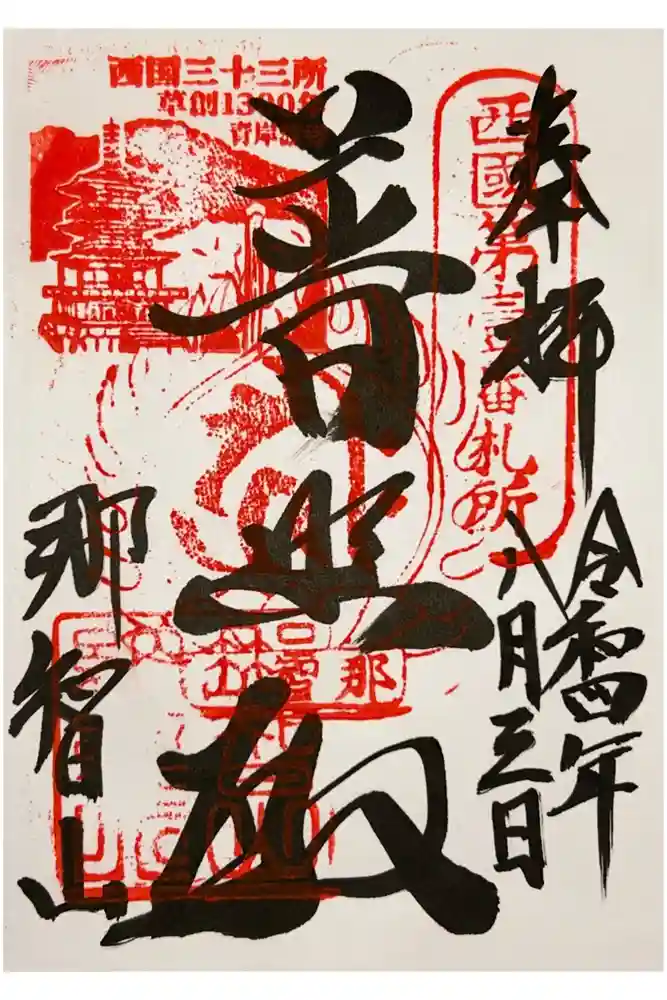 奉拝
令和四年
八月三日
西國第壹番札所
普照殿
西国三十三所
草創1300年
青岸渡寺
那智山
那智山